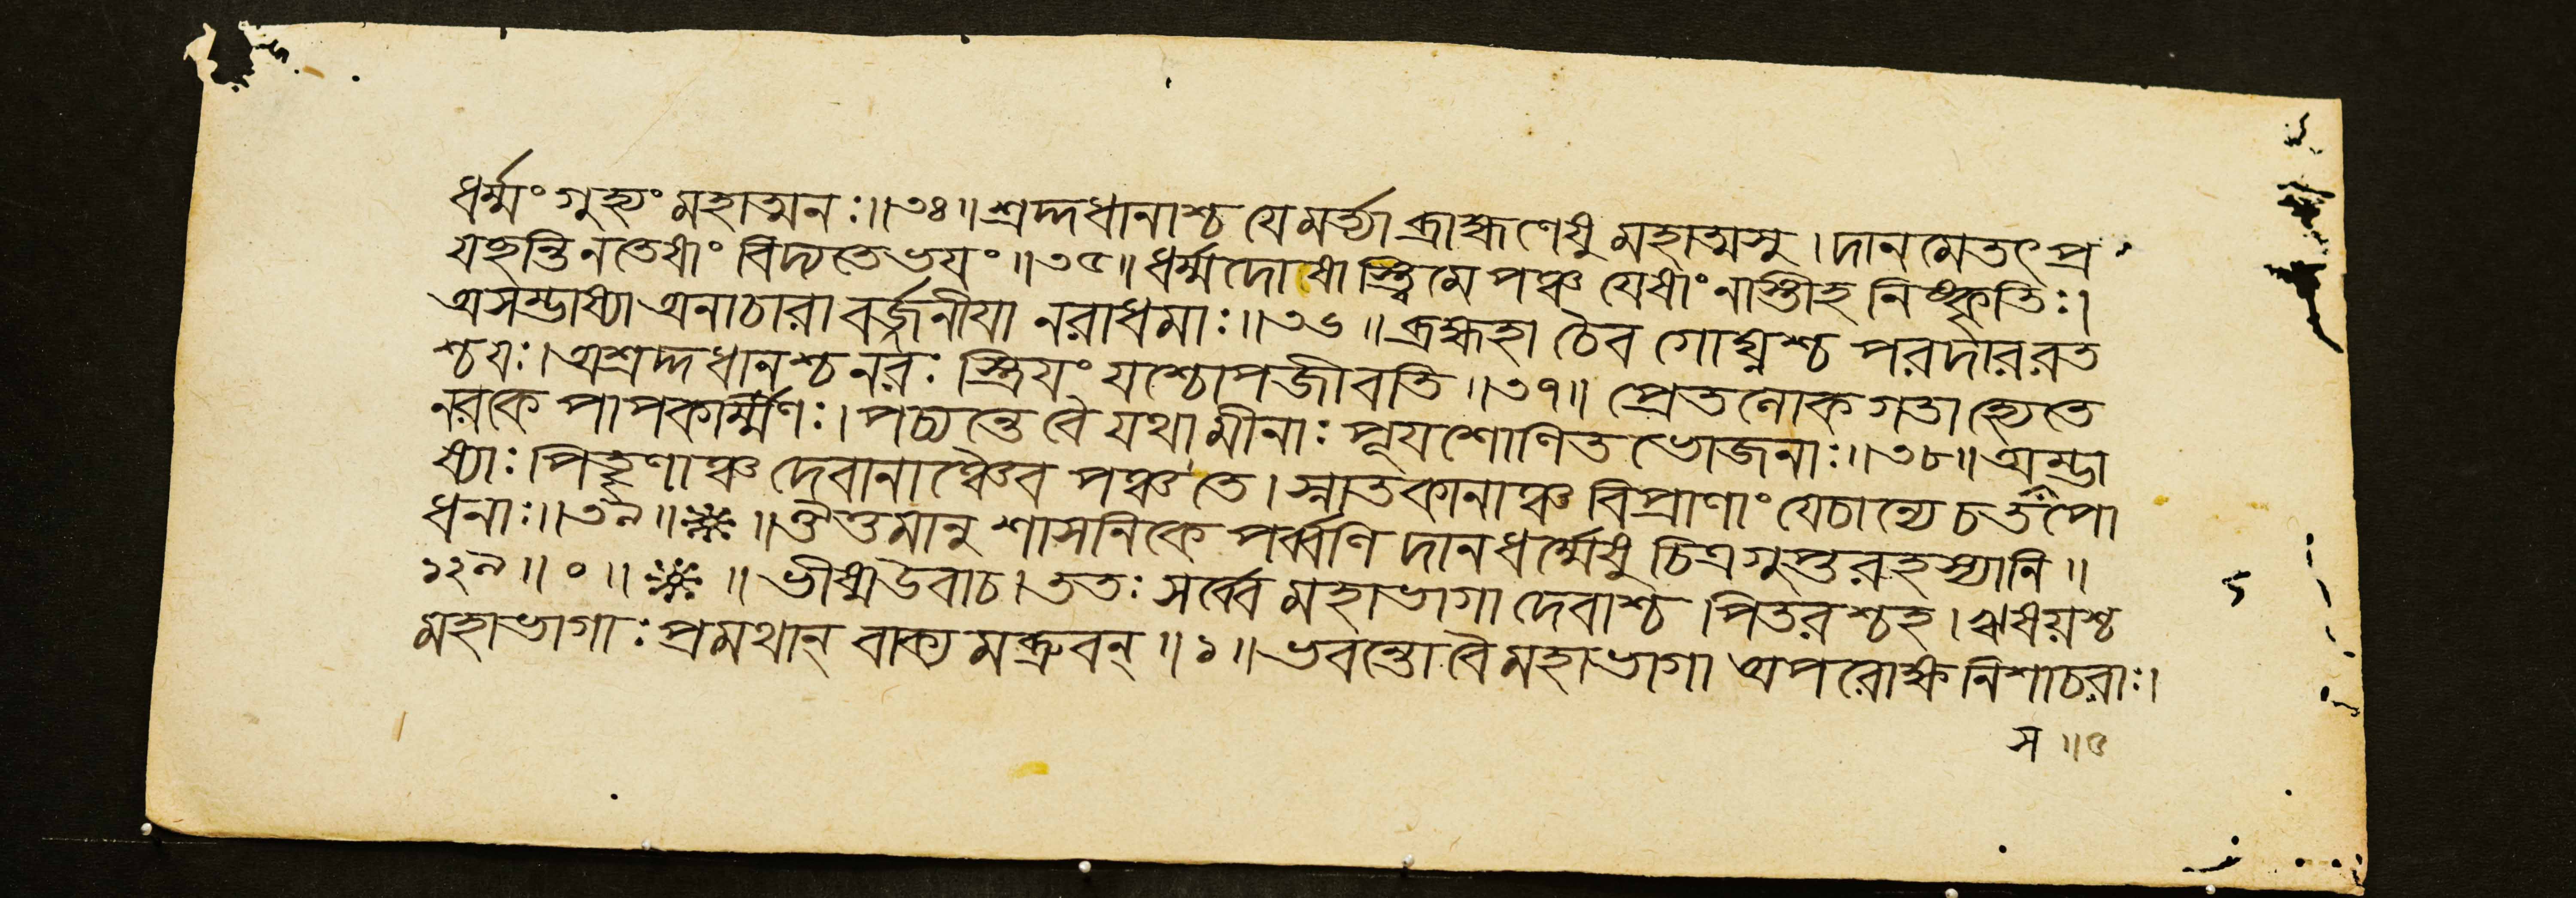 ধর্ম্মং গুহ্যং মহাত্মনঃ॥৩৪॥শ্রদ্দধানাশ্চ যে মর্ত্ত্যা ব্রাহ্মণেষু মহাত্মসু।দানমেতৎ প্র
যচ্ছন্তি ন তেষাং বিদ্যতে ভয়ং॥৩৫॥ধর্ম্মদোষাস্ত্বিমে পঞ্চ যেষাং নাস্তীহ নিষ্কৃতিঃ।
অসম্ভাষ্যা অনাচারা বর্জ্জনীয়া নরাধমাঃ॥৩৬॥ব্রহ্মহা চৈব গোঘ্নশ্চ পরদাররত
শ্চ যঃ।অশ্রদ্দধানশ্চ নরঃ স্ত্রিয়ং যশ্চোপজীবতি॥৩৭॥প্রেতলোকগতা হ্যেতে
নরকে পাপকর্ম্মিণঃ।পচ্যন্তে বৈ যথা মীনাঃ পূয়শোণিতভোজনাঃ॥৩৮॥অসম্ভা
ষ্যাঃ পিতৄণাঞ্চ দেবানাঞ্চৈব পঞ্চ তে।স্নাতকানাঞ্চ বিপ্রাণাং যে চান্যে চ তপো
ধনাঃ॥৩৯॥ ॥ঔঁ তমানুশাসনিকে পর্ব্বণি দানধর্ম্মেষু চিত্রগুপ্তরহস্যানি॥
১২৯॥০॥ ॥ভীষ্ম উবাচ।ততঃ সর্ব্বে মহাভাগা দেবাশ্চ পিতরশ্চ হ।ঋষয়শ্চ
মহাভাগাঃ প্রমথান্ বাক্যমব্রুবন্॥১॥ভবন্তো বৈ মহাভাগা অপরোক্ষনিশাচরাঃ।
স ॥৫